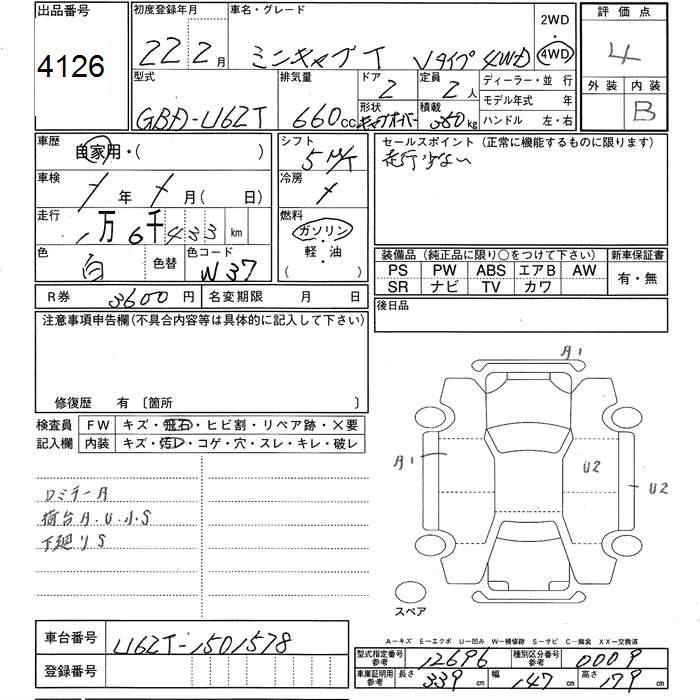 出品番号
4126
初度登録年月
22年2月
車名・グレード
ミニキャブT Vタイプ 4WD
2WD
・
4WD
評価点
4
外装 内装
B
型式
GBD-U62T
排気量
660cc
ドア
2
定員
2人
形状
キャブオーバー
積載
350kg
ディーラー・並 行
モデル年式 年
ハンドル 左・右
車歴
自家用・( )
車検
/年/月( 日)
走行
1万6千433km
色
白
色替
色コード
W37
シフト
5 M/T
冷房
/
燃料
ガソリン・
軽・油
( )
セールスポイント (正常に機能するものに限ります)
走行少ない
装備品 (純正品に限り○をつけて下さい)
PS PW ABS エアB AW
SR ナビ TV カワ
新車保証書
有・無
後日品
R券 3600円
名変期限 月 日
注意事項申告欄(不具合内容等は具体的に記入して下さい)
修復歴 有 〔箇所 〕
検査員
記入欄
FW キズ・飛石・ヒビ割・リペア跡・×要
内装 キズ・汚レ・コゲ・穴・スレ・キレ・破レ
ロミラーA
荷台A.U.小S
下廻りS
A1
A1
U2
U2
スペア
A−キズ E−エクボ U−凹み W−補修跡 S−サビ C−腐食 XX−交換済
車台番号
U62T-1501578
登録番号
型式指定番号
参考
12696
種別区分番号
参考
0009
車庫証明用
参考
長さ
339cm
幅
147cm
高さ
179cm